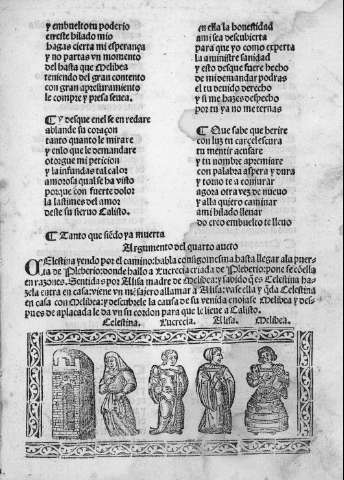 y embueltoeu poderio
en este hilado mio
hagas cierta mi esperança
y no partas vn momento
del hasta que Melibea
teniendo del gran contento
con gran apressuramiento
le compre y presa seuea.
¶ Y desque enel se en redare
ablande su coraçon
tanto quanto le mirare
y enlo que le demandare
otorgue mi peticion
y la infundas tal calor
amorosa qual se ha visto
porque con fuerte dolor
la lastimes del amor
deste su sieruo Calisto.
en ella la honestidad
ami sea descubierta
para que yo como experta
la aministre sanidad
y esto desque fuere hecho
de mi demandar podras
el tu deuido derecho
y si me hazes despecho
por tu ya no me ternas
¶ Que sabe que herire
con luz tu carcel escura
tu mentir acusare
y tu nombre apremiare
con palabra aspera y dura
y torno te a conjurar
agora otra vez de nueuo
y alla quiero caminar
a mi hilado lleuar
do creo embuelto te lleuo
¶ Tanto que siẽdo ya muerta
Argumento del quarto aucto
CElestina yendo por el camino: habla consigo mesma hasta llegar ala puer
ta de Pleberio: donde hallo a Lucrecia criada de Pleberio: pone se cõ ella
en razones. Sentidas por Alisa madre de Melibea: y sabido q̃ es Celestina haz
la entra en casa: viene vn mẽsajero a llamar a Alisa: vase ella y q̃da Celestina
en casa con Melibea: y descubrele la causa de su venida enojase Melibea y des
pues de aplacada le da vn su cordon para que le lieue a Calisto.
Celestina. Lucrecia. Alisa. Melibea.